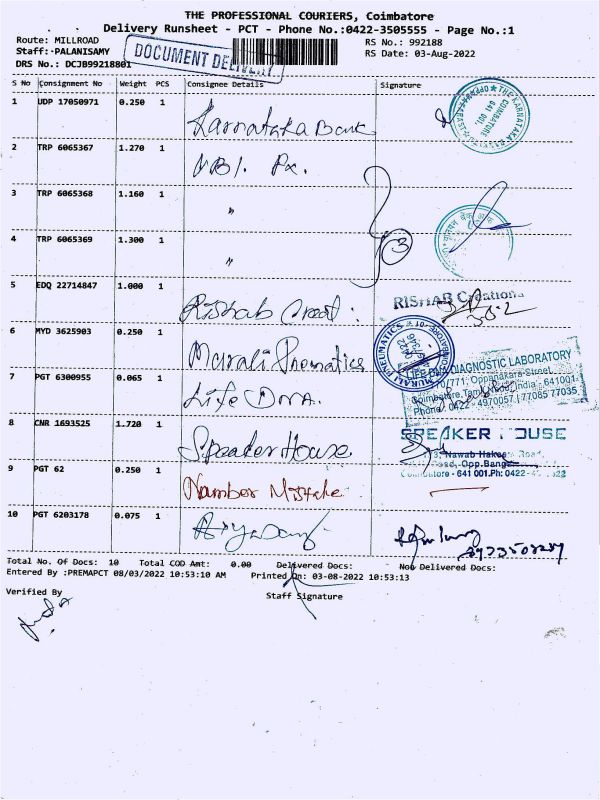 THE PROFESSIONAL COURIERS, Coimbatore
Delivery Runsheet - PCT - Phone No.:0422-3505555 - Page No.:1
Route: MILLROAD
RS No.: 992188
Staff:-PALANISAMY
DOCUMENT DELIVERY
RS Date: 03-Aug-2022
DRS No.: DCJB99218801
S No Consignment No Weight PCS Consignee Details Signature
1 UDP 17050971 0.250 1
Karnataka Bank
COIMBATORE
641 001.
2 TRP 6065367 1.270 1
3 TRP 6065368 1.160 1
"
4 TRP 6065369 1.300 1
"
3
5 EDQ 22714847 1.000 1
Rishab Creat:
RISHAB Creations
6 MYD 3625903 0.250 1
Murali Pnematics
MURALI PNEUMATICS
7 PGT 6300955 0.065 1
Life DNA.
LIFE DNA DIAGNOSTIC LABORATORY
70/771, Oppanakara Street,
Coimbatore, Tamil Nadu, India - 641001.
Phone: 0422 - 4970057 | 77085 77035
8 CNR 1693525 1.720 1
Speaker House
SPEAKER HOUSE
Nawab Hakeem Road,
Road, Opp.
Coimbatore - 641 001.Ph: 0422-
9 PGT 62 0.250 1
Number Mistake
10 PGT 6203178 0.075 1
Total No. Of Docs: 10 Total COD Amt: 0.00 Delivered Docs: Non Delivered Docs:
Entered By :PREMAPCT 08/03/2022 10:53:10 AM Printed On: 03-08-2022 10:53:13
Verified By
Staff Signature